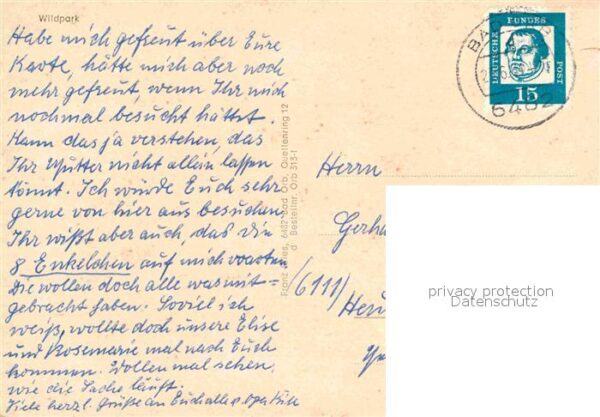 Wildpark
Habe mich gefreut über Eure
Karte, hätte mich aber noch
mehr gefreut, wenn Ihr mich
nochmal besucht hättet.
Kann das ja verstehen, das
Ihr Mutter nicht allein lassen
könnt. Ich würde Euch sehr
gerne von hier aus besuchen,
Ihr wißt aber auch, daß die
8 Enkelchen auf mich warten
die wollen doch alle was mit=
gebracht haben. Soviel ich
weiß, wollte doch unsere Elise
und Rosemarie mal nach Euch
kommen. Wollen mal sehen,
wie die Sache läuft.
Viele herzl. Grüße an Euch alle v. Opa
6482 Bad Orb, Quellenring 12
Bestellnr. Orb 313-1
DEUTSCHE
BUNDES
POST
15
BAD
6482
Herrn
Gerha
(6111)
Heu
privacy protection
Datenschutz